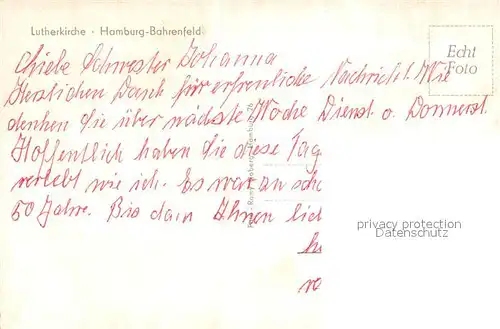 Lutherkirche · Hamburg-Bahrenfeld
Echt
Foto
Liebe Schwester Johanna
Herzlichen Dank für erfreuliche Nachricht. Wie
denken Sie über nächste Woche Dienst. o. Donnerst.
Hoffentlich haben Sie diese Tag
verlebt wie ich. Es war so sch
50 Jahre. Bis dann Ihnen lieb
privacy protection
Datenschutz